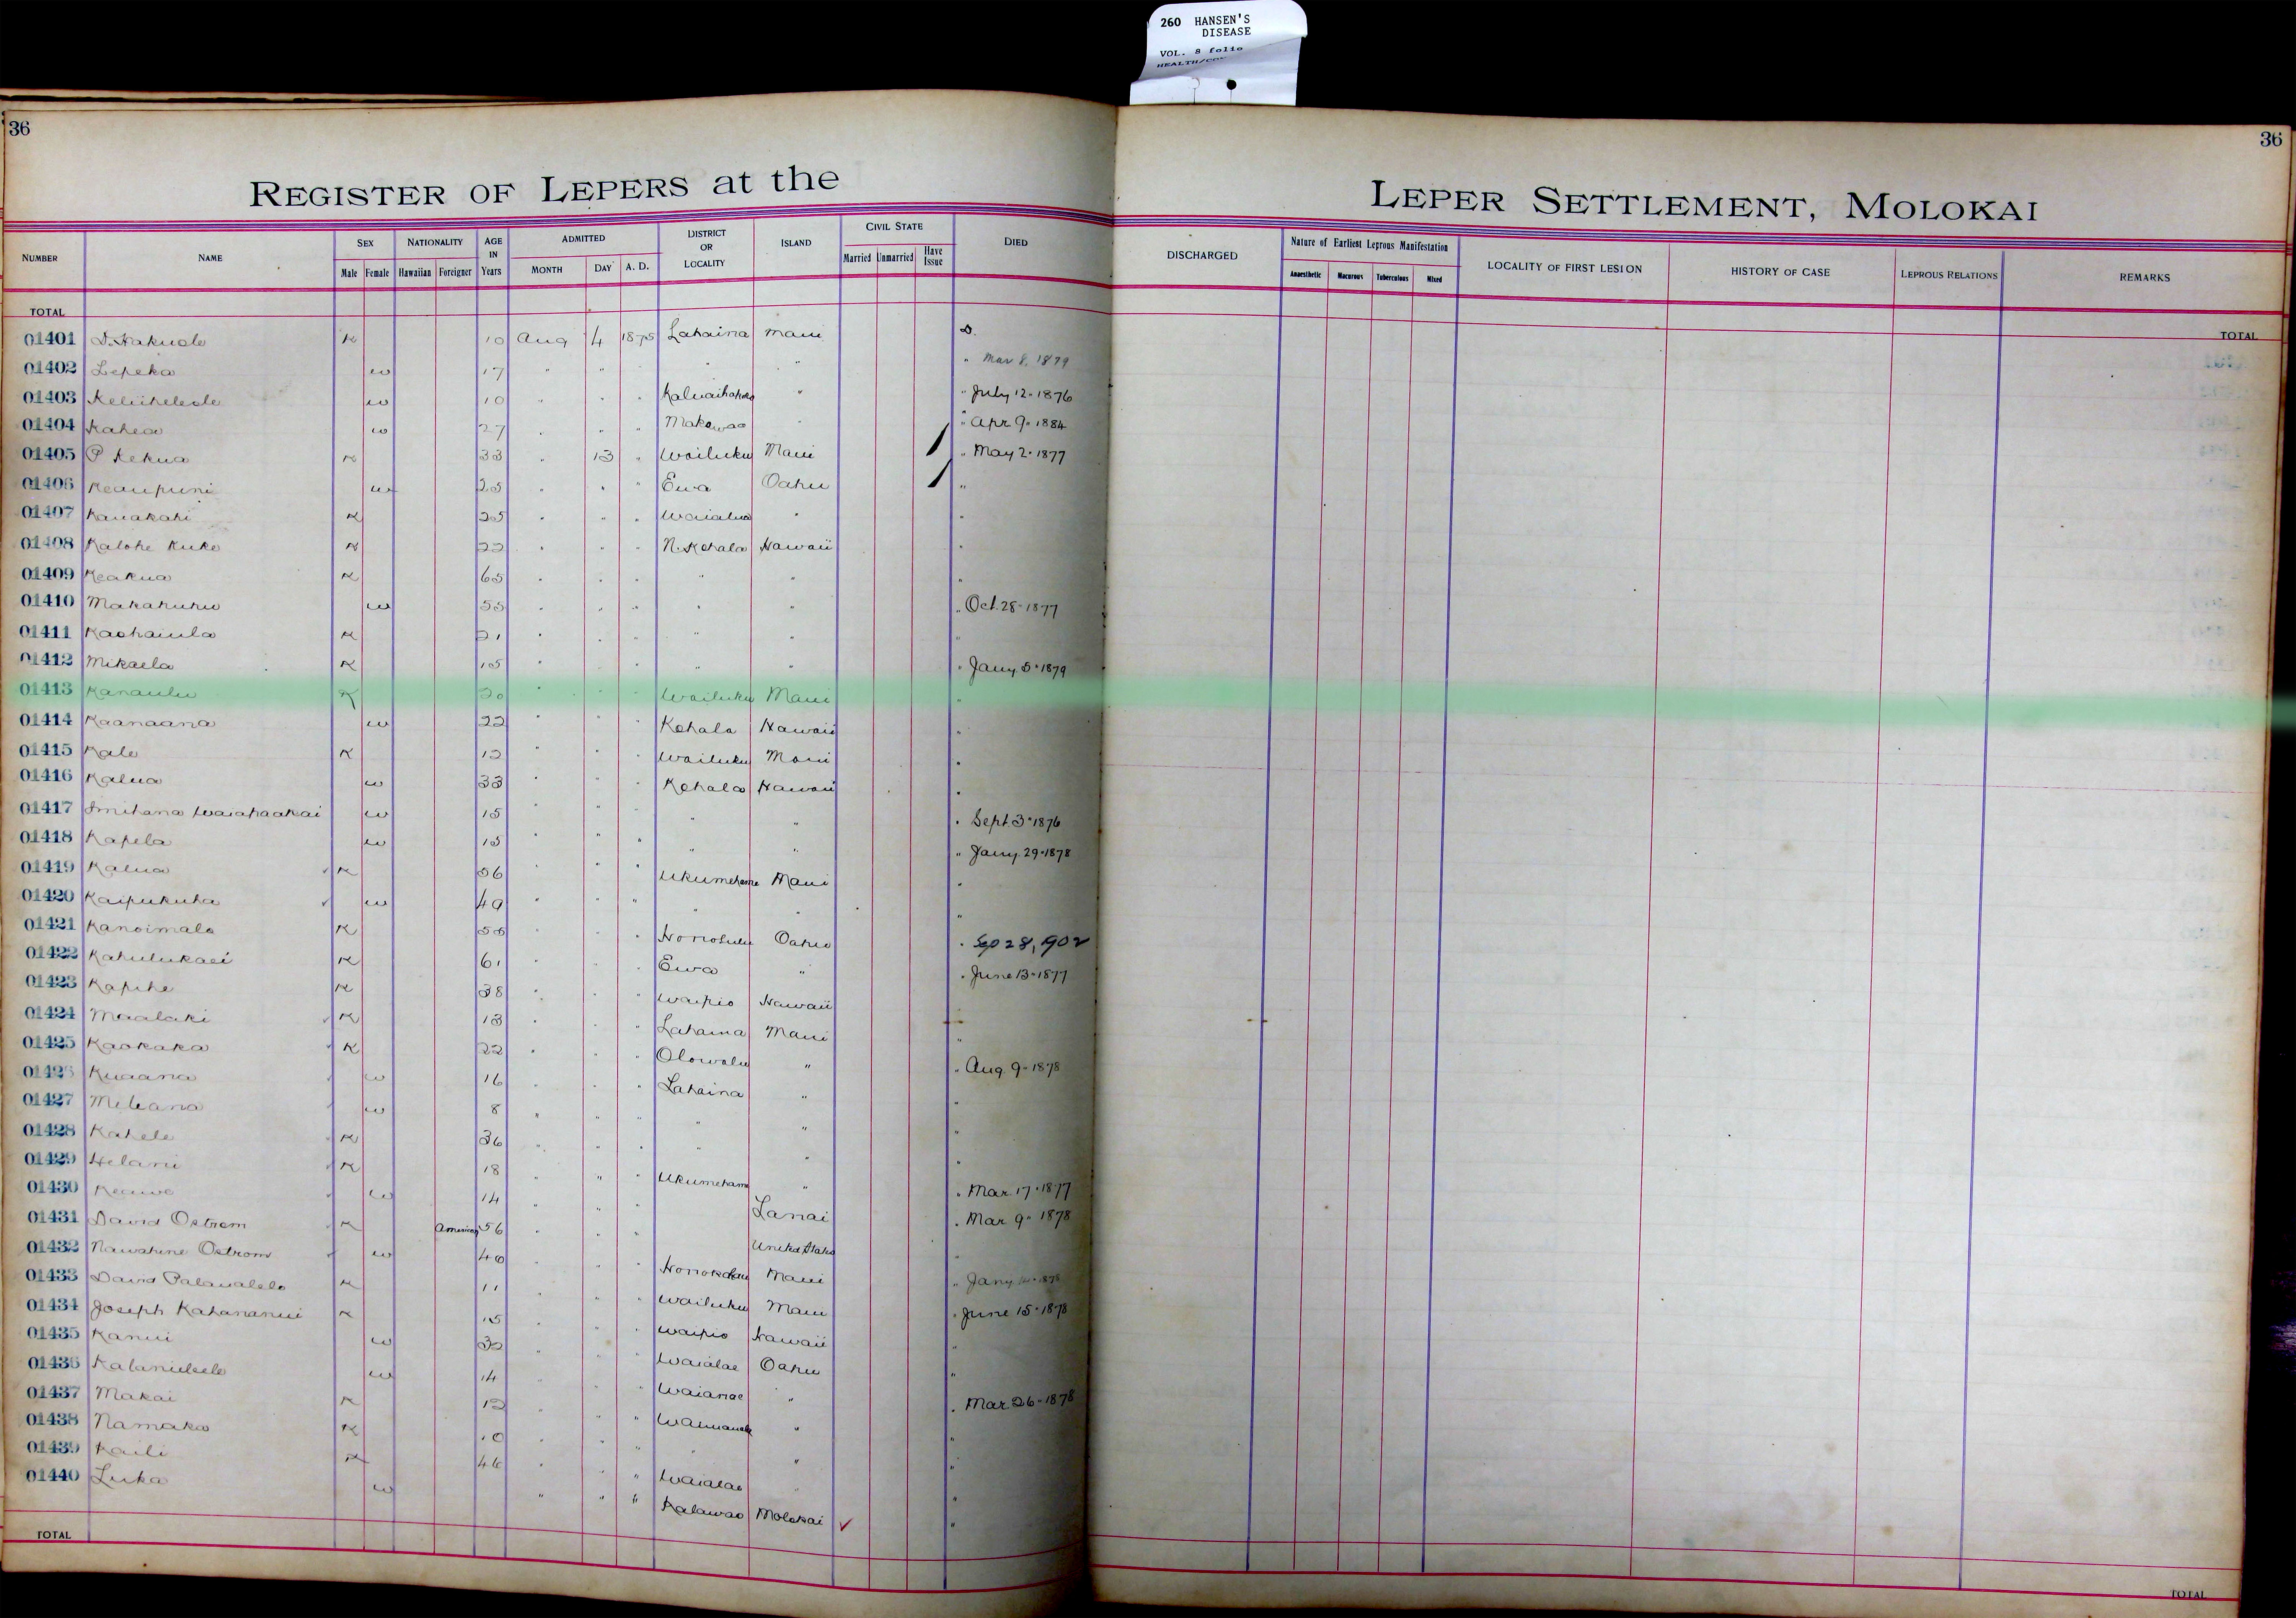 260 HANSEN'S
DISEASE
VOL. 8 folio
36
36
REGISTER OF LEPERS at the
LEPER SETTLEMENT, MOLOKAI
NUMBER NAME SEX Male Female NATIONALITY Hawaiian Foreigner AGE IN Years ADMITTED MONTH DAY A. D. DISTRICT OR LOCALITY ISLAND CIVIL STATE Married Unmarried Have Issue DIED
DISCHARGED Nature of Earliest Leprous Manifestation Anaesthetic Macurous Tuberculous Mixed LOCALITY OF FIRST LESION HISTORY OF CASE LEPROUS RELATIONS REMARKS
TOTAL
TOTAL
01401 D. Hakuole K 10 Aug 4 1875 Lahaina Maui D.
01402 Lepeka w 17 " " " " " " Mar 8, 1879
01403 Keliihelele w 10 " " " " " July 12-1876
01404 Kahea w 27 " " " Makawao " " Apr 9-1884
01405 P Kekua K 33 " 13 " Wailuku Maui " May 2-1877
01406 Keaupuni w 25 " " " Ewa Oahu "
01407 Kauakahi K 25 " " " Waialua " "
01408 Kalohe Kuke K 22 " " " N. Kohala Hawaii "
01409 Keakua K 65 " " " " " "
01410 Makahuhu w 55 " " " " " " Oct. 28-1877
01411 Kaohaiula K 21 " " " " " "
01412 Mikaela K 15 " " " " " " Jany 5-1879
01413 Kanaulu K 20 " " " Wailuku Maui "
01414 Kaanaana w 22 " " " Kohala Hawaii "
01415 Kale K 12 " " " Wailuku Maui "
01416 Kalua w 33 " " " Kohala Hawaii "
01417 w 15 " " " " " " Sept. 3-1876
01418 Kapela w 15 " " " " " " Jany. 29-1878
01419 Kalua K 56 " " " Ukumehame Maui "
01420 Kaipukuha w 49 " " " " " "
01421 Kanoimalo K " " " Honolulu Oahu " Sep 28, 1902
01422 Kahulukaei K 61 " " " Ewa " " June 13-1877
01423 Kapihe K 38 " " " Waipio Hawaii
01424 Maalaki K 13 " " " Lahaina Maui "
01425 Kaokaka K 22 " " " Olowalu " " Aug. 9-1878
01426 Kuaana w 16 " " " Lahaina " "
01427 Meleana w 8 " " " " " "
01428 Kahele K 36 " " " " " "
01429 Helani K 18 " " " Ukumehame " " Mar. 17-1877
01430 Keawe w 14 " " " Lanai " Mar. 9-1878
01431 David Ostrom K American 56 " " " United States "
01432 Nawahine Ostrom w " " " Honokohau Maui " Jany
01433 David Palaualelo K 11 " " " Wailuku Maui " June 15-1878
01434 Joseph Kahananui K 15 " " " Waipio Hawaii "
01435 Kanui w 32 " " " Waialae Oahu "
01436 w 14 " " " Waianae " " Mar. 26-1878
01437 Makai K 12 " " " " "
01438 Namaka K 10 " " " " " "
01439 Kaili K 46 " " " Waialae " "
01440 Luka w " " " Kalawao Molokai "
TOTAL
TOTAL